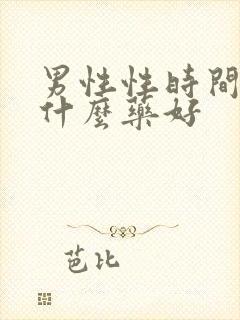 男性性時間
什麼藥好
芭比